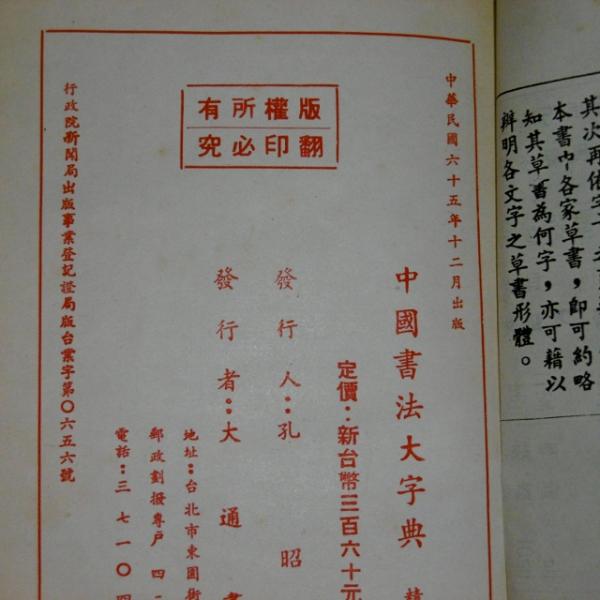 中華民國六十五年十二月出版
版權所有
翻印必究
中國書法大字典 精
定價：新台幣三百六十元
發行人：孔昭
發行者：大通書
地址：台北市東園街
郵政劃撥專戶四二
電話：三七一〇四
行政院新聞局出版事業登記證局版台業字第〇六五六號
其次再依字
本書中各家草書，即可約略
知其草書為何字，亦可藉以
辨明各文字之草書形體。